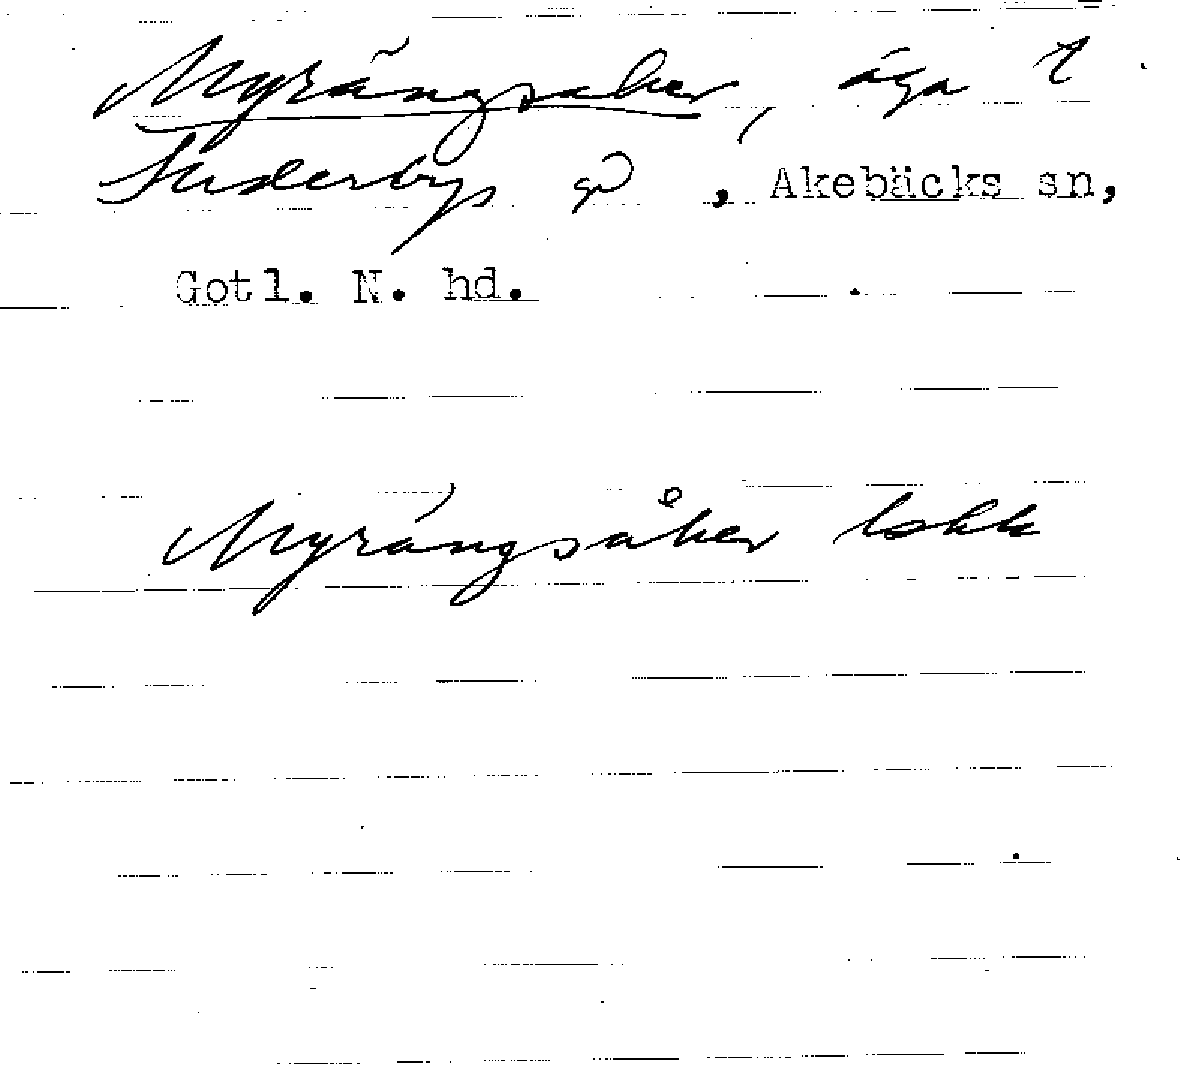 Myrängsaker, äga t
Suderbys gd, Akebäcks sn,
Gotl. N. hd.
Myrängsåker lskk